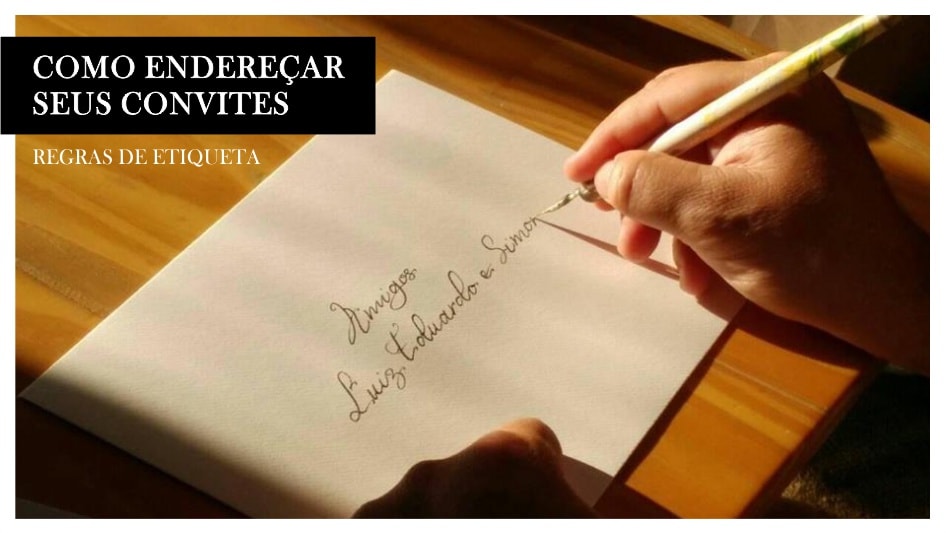 COMO ENDEREÇAR
SEUS CONVITES
REGRAS DE ETIQUETA
Amigos
Luiz Eduardo e Simon